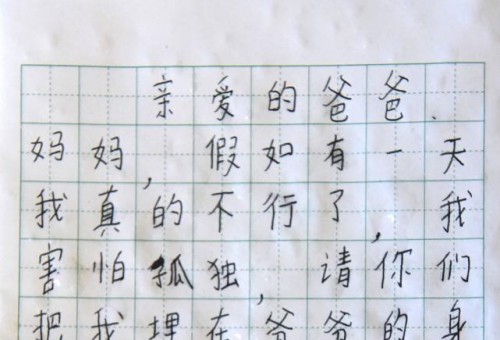 亲爱的爸爸、
妈妈,假如有一天
我真的不行了,我
害怕孤独,请你们
把我埋在爸爸的身